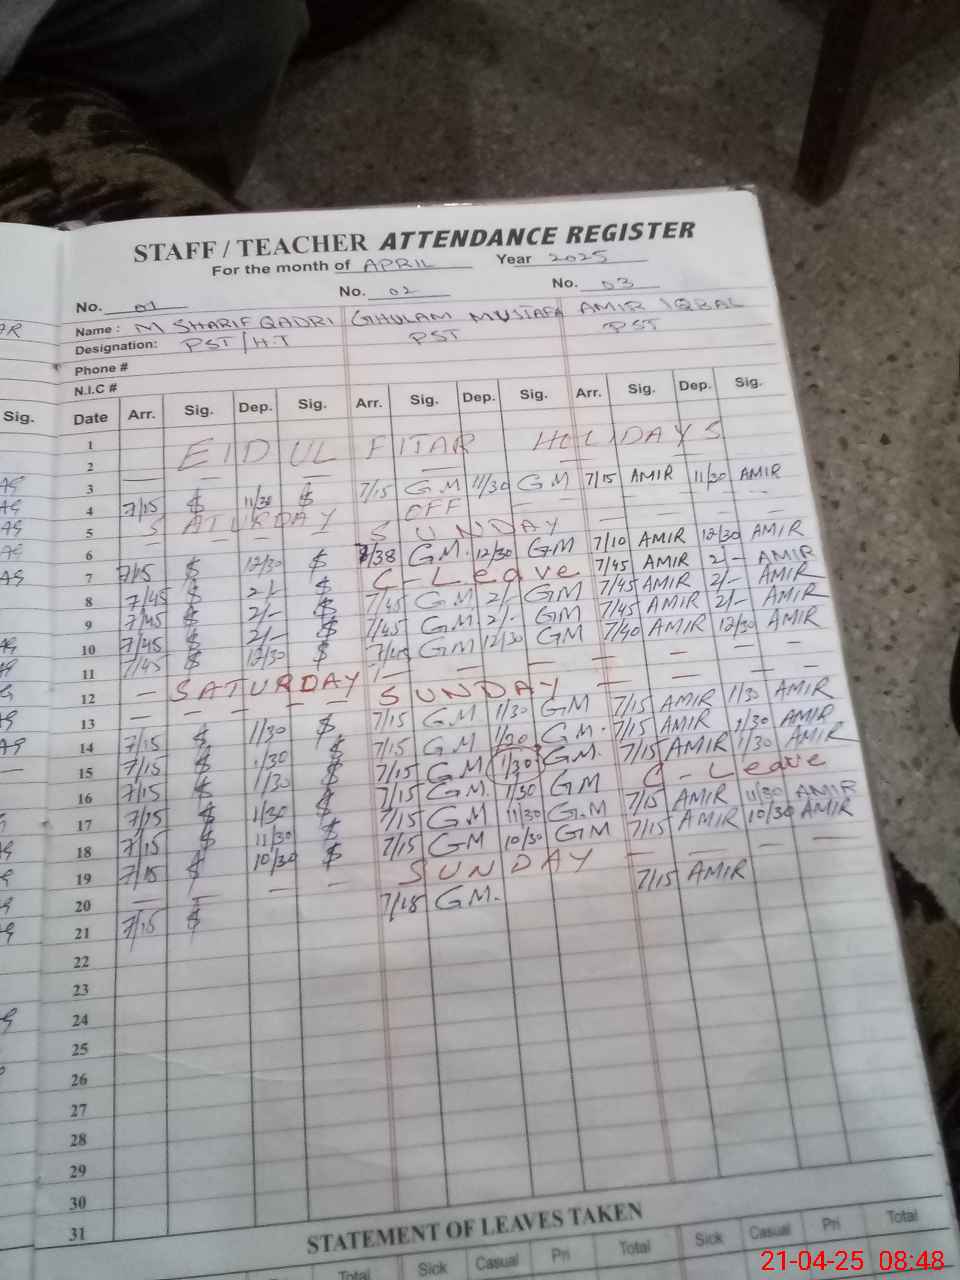 STAFF / TEACHER ATTENDANCE REGISTER
For the month of APRIL Year 2025
No. 01 No. 02 No. 03
Name : M SHARIF QADRI GHULAM MUSTAFA AMIR IQBAL
Designation: PST / H.T PST PST
Phone #
N.I.C #
Sig. Date Arr. Sig. Dep. Sig. Arr. Sig. Dep. Sig. Arr. Sig. Dep. Sig.
1 EID UL FITAR HOLIDAYS
2 — — — —
3 7/15 $ 11/30 $ 7/15 GM 11/30 GM 7/15 AMIR 11/30 AMIR
4 SATURDAY SUNDAY OFF
5 — — — —
6 7/15 $ 12/30 $ 7/38 G.M. 12/30 GM 7/10 AMIR 12/30 AMIR
7 7/45 $ 2/- $ C - Leave 7/45 AMIR 2/- AMIR
8 7/45 $ 2/- $ 7/45 G.M 2/- GM 7/45 AMIR 2/- AMIR
9 7/45 $ 2/- $ 7/45 G.M 2/- GM 7/45 AMIR 2/- AMIR
10 7/45 $ 12/30 $ 7/45 GM 12/30 GM 7/40 AMIR 12/30 AMIR
11 — SATURDAY SUNDAY — —
12 — — — —
13 7/15 $ 1/30 $ 7/15 GM 1/30 GM 7/15 AMIR 1/30 AMIR
14 7/15 $ 1/30 $ 7/15 GM 1/30 G.M. 7/15 AMIR 1/30 AMIR
15 7/15 $ 1/30 $ 7/15 GM 1/30 GM. 7/15 AMIR 1/30 AMIR
16 7/15 $ 1/30 $ 7/15 GM. 1/30 GM C - Leave
17 7/15 $ 11/30 $ 7/15 GM 11/30 G.M 7/15 AMIR 11/30 AMIR
18 7/15 $ 10/30 $ 7/15 GM 10/30 GM 7/15 AMIR 10/30 AMIR
19 — — — — SUNDAY — — — —
20 7/15 $ 7/18 G.M. 7/15 AMIR
21
22
23
24
25
26
27
28
29
30
31
STATEMENT OF LEAVES TAKEN
Total Sick Casual Pri Total Sick Casual Pri Total
21-04-25 08:48